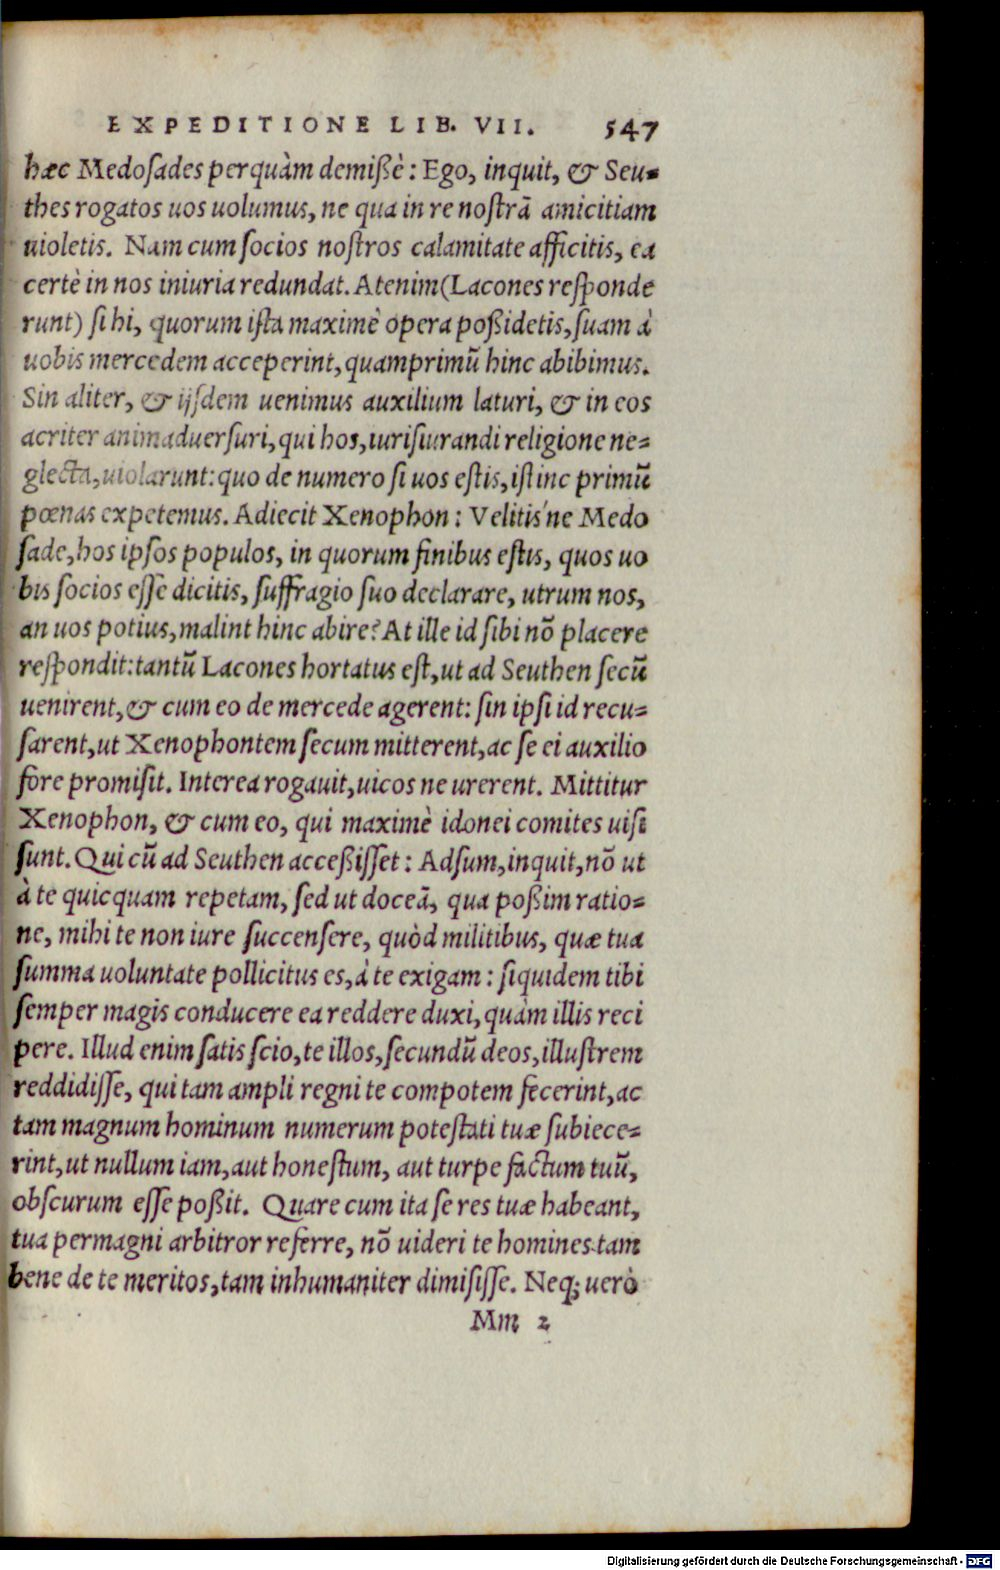 EXPEDITIONE LIB. VII. 547
hæc Medosades perquàm demißè: Ego, inquit, & Seu=
thes rogatos uos uolumus, ne qua in re nostrā amicitiam
uioletis. Nam cum socios nostros calamitate afficitis, ea
certè in nos iniuria redundat. Atenim (Lacones responde
runt) si hi, quorum ista maximè opera poßidetis, suam à
uobis mercedem acceperint, quamprimū hinc abibimus.
Sin aliter, & ijsdem uenimus auxilium laturi, & in eos
acriter animaduersuri, qui hos, iurisiurandi religione ne=
glecta, uiolarunt: quo de numero si uos estis, istinc primū
pœnas expetemus. Adiecit Xenophon: Velitis'ne Medo
sade, hos ipsos populos, in quorum finibus estis, quos uo
bis socios esse dicitis, suffragio suo declarare, utrum nos,
an uos potius, malint hinc abire? At ille id sibi nō placere
respondit: tantū Lacones hortatus est, ut ad Seuthen secū
uenirent, & cum eo de mercede agerent: sin ipsi id recu=
sarent, ut Xenophontem secum mitterent, ac se ei auxilio
fore promisit. Interea rogauit, uicos ne urerent. Mittitur
Xenophon, & cum eo, qui maximè idonei comites uisi
sunt. Qui cū ad Seuthen acceßisset: Adsum, inquit, nō ut
à te quicquam repetam, sed ut doceā, qua poßim ratio=
ne, mihi te non iure succensere, quòd militibus, quæ tua
summa uoluntate pollicitus es, à te exigam: siquidem tibi
semper magis conducere ea reddere duxi, quàm illis reci
pere. Illud enim satis scio, te illos, secundū deos, illustrem
reddidisse, qui tam ampli regni te compotem fecerint, ac
tam magnum hominum numerum potestati tuæ subiece=
rint, ut nullum iam, aut honestum, aut turpe factum tuū,
obscurum esse poßit. Quare cum ita se res tuæ habeant,
tua permagni arbitror referre, nō uideri te homines tam
bene de te meritos, tam inhumaniter dimisisse. Neq; uerò
Mm 2
Digitalisierung gefördert durch die Deutsche Forschungsgemeinschaft - DFG